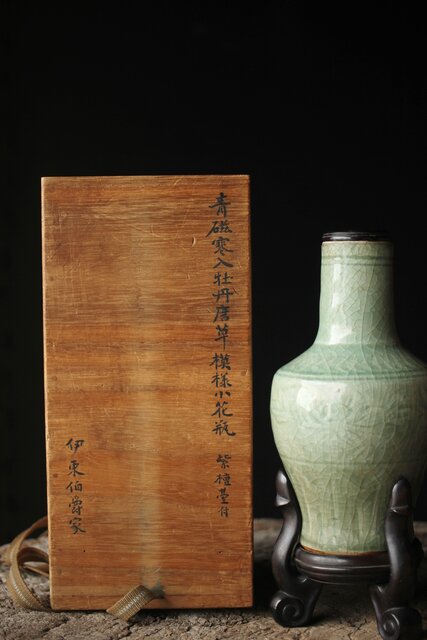 青磁寒入牡丹唐草模様小花瓶
紫檀臺付
伊東伯爵家